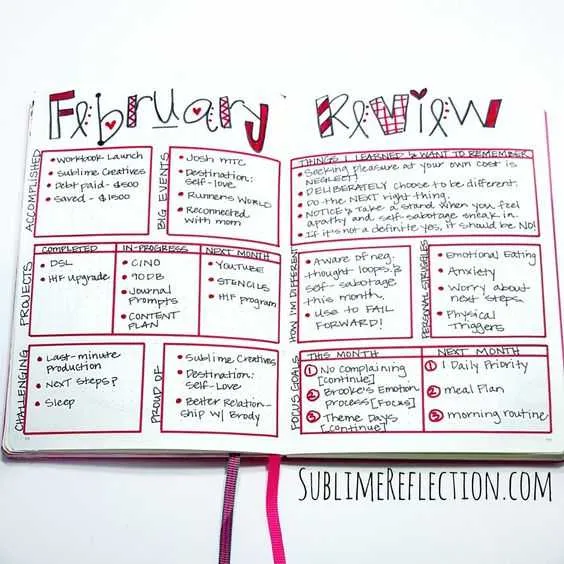 February Review
ACCOMPLISHED
• Workbook Launch
• Sublime Creatives
• Debt paid - $500
• Saved - $1500
BIG EVENTS
• Josh MTC
• Destination:
self-love
• Runners World
• Reconnected
with mom
PROJECTS
COMPLETED
• DSL
• HF upgrade
IN-PROGRESS
• CINO
• 90DB
• Journal
Prompts
• CONTENT
PLAN
NEXT MONTH
• YOUTUBE
• STENCILS
• HIF program
CHALLENGING
• Last-minute
Production
• NEXT Steps?
• Sleep
PROUD OF
• Sublime Creatives
• Destination:
Self-Love
• Better Relation-
ship w/ Brody
THINGS I LEARNED & WANT TO REMEMBER
• Seeking pleasure at your own cost is
NEGLECT!
• DELIBERATELY choose to be different.
• Do the NEXT right thing.
• NOTICE & Take a stand when you feel
apathy and self-sabotage sneak in.
• If it's not a definite yes, it should be NO!
HOW I'M DIFFERENT
• Aware of neg.
thought loops &
self-sabotage
this month.
• Use to FAIL
FORWARD!
PERSONAL STRUGGLES
• Emotional Eating
• Anxiety
• Worry about
next steps
• Physical
Triggers
FOCUS GOALS
THIS MONTH
1 No Complaining
[continue]
2 Brooke's Emotion
process [Focus]
3 Theme Days
[continue]
NEXT MONTH
1 1 Daily Priority
2 meal Plan
3 morning routine
SUBLIMEREFLECTION.COM